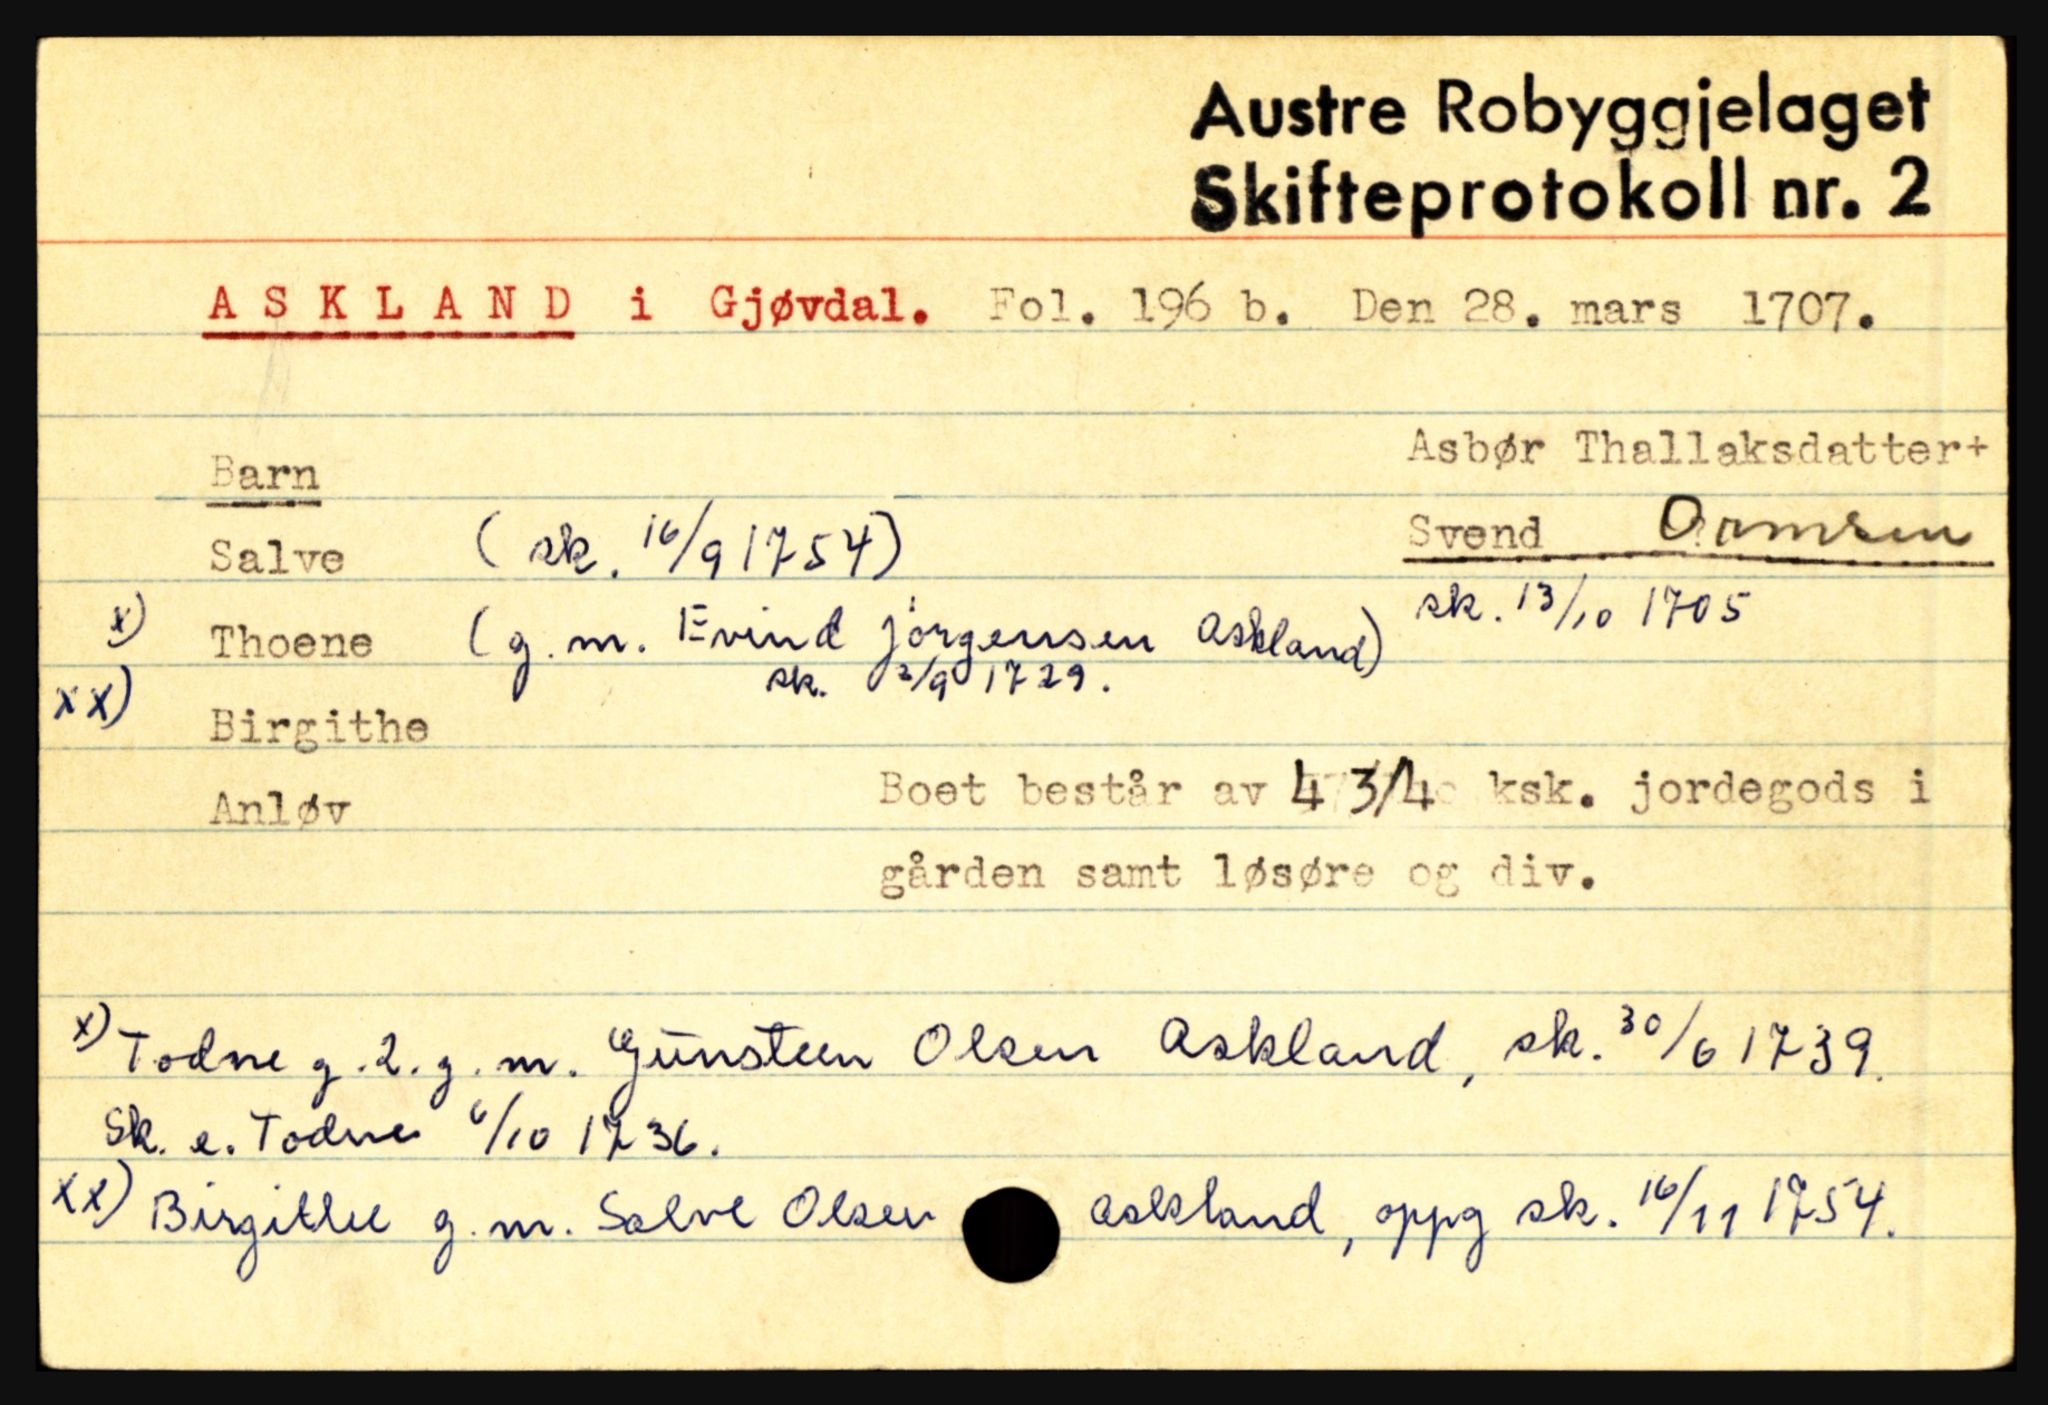 Austre Robyggjelaget
Skifteprotokoll nr. 2
ASKLAND i Gjøvdal. Fol. 196 b. Den 28. mars 1707.
Asbør Thallaksdatter+
Barn
Svend Ormsen
Salve ( sk. 16/9 1754)
sk. 13/10 1705
x) Thoene ( g. m. Evind Jörgensen Askland)
sk. 2/9 1729.
xx) Birgithe
Boet består av 4 3/4 ksk. jordegods i
Anløv
gården samt løsøre og div.
x) Todne g. 2. g. m. Gunsteen Olsen Askland, sk. 30/6 1739.
Sk. e. Todne 6/10 1736.
xx) Birgithe g. m. Salve Olsen Askland, oppg sk. 16/11 1754.